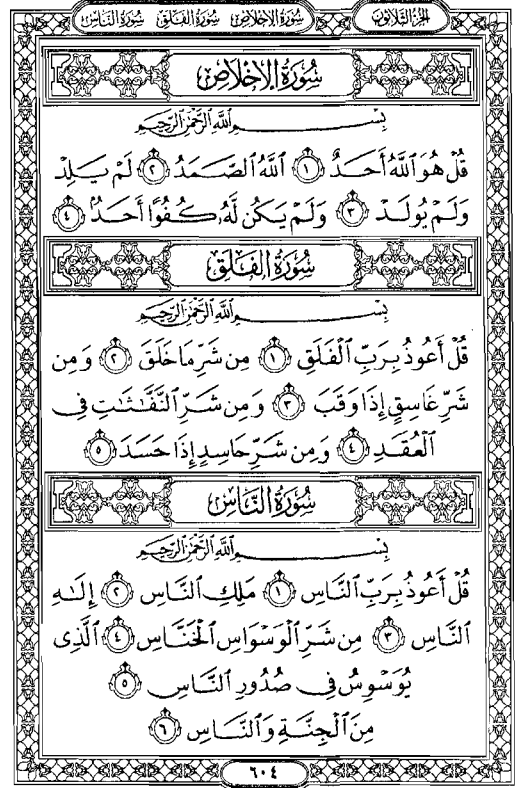 الجزء الثلاثون
سورة الإخلاص سورة الفلق سورة الناس
سُورَةُ الإِخْلَاصِ
بِسْمِ ٱللَّهِ ٱلرَّحْمَٰنِ ٱلرَّحِيمِ
قُلْ هُوَ ٱللَّهُ أَحَدٌ ١ ٱللَّهُ ٱلصَّمَدُ ٢ لَمْ يَلِدْ
وَلَمْ يُولَدْ ٣ وَلَمْ يَكُن لَّهُۥ كُفُوًا أَحَدٌۢ ٤
سُورَةُ الْفَلَقِ
بِسْمِ ٱللَّهِ ٱلرَّحْمَٰنِ ٱلرَّحِيمِ
قُلْ أَعُوذُ بِرَبِّ ٱلْفَلَقِ ١ مِن شَرِّ مَا خَلَقَ ٢ وَمِن
شَرِّ غَاسِقٍ إِذَا وَقَبَ ٣ وَمِن شَرِّ ٱلنَّفَّٰثَٰتِ فِى
ٱلْعُقَدِ ٤ وَمِن شَرِّ حَاسِدٍ إِذَا حَسَدَ ٥
سُورَةُ النَّاسِ
بِسْمِ ٱللَّهِ ٱلرَّحْمَٰنِ ٱلرَّحِيمِ
قُلْ أَعُوذُ بِرَبِّ ٱلنَّاسِ ١ مَلِكِ ٱلنَّاسِ ٢ إِلَٰهِ
ٱلنَّاسِ ٣ مِن شَرِّ ٱلْوَسْوَاسِ ٱلْخَنَّاسِ ٤ ٱلَّذِى
يُوَسْوِسُ فِى صُدُورِ ٱلنَّاسِ ٥
مِنَ ٱلْجِنَّةِ وَٱلنَّاسِ ٦
٦٠٤